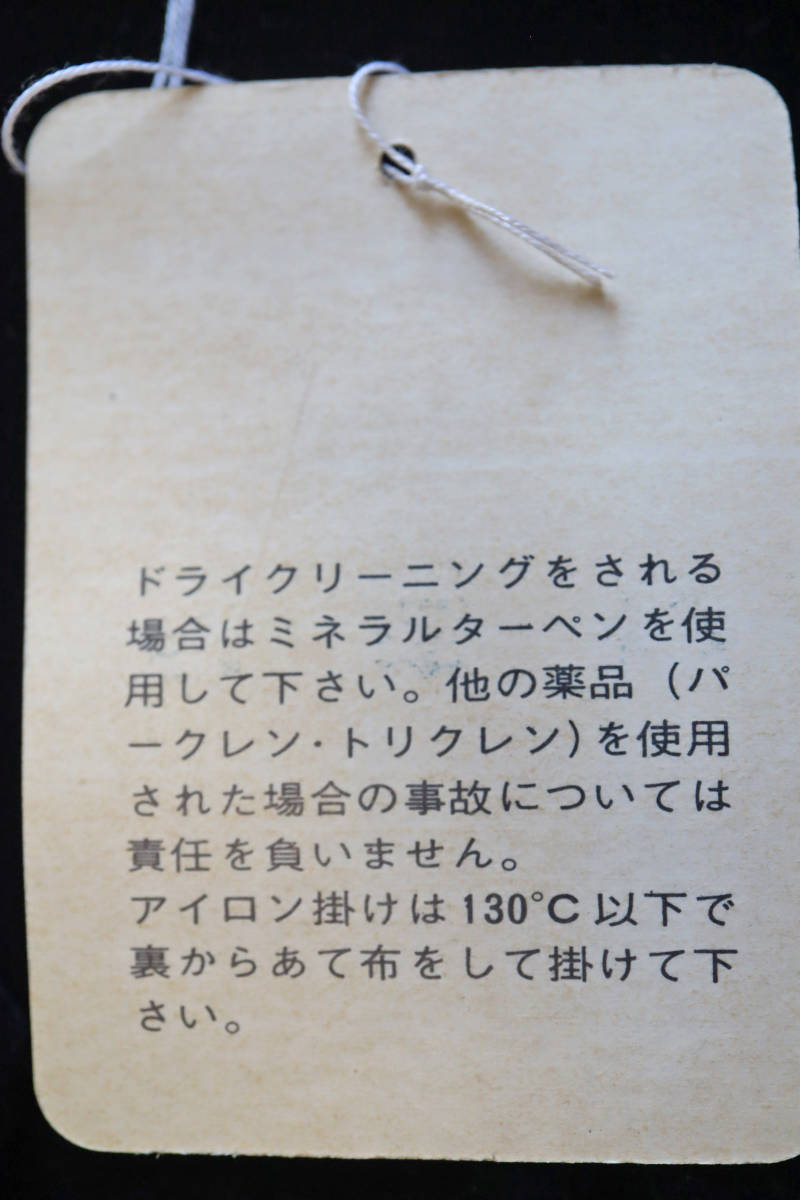 ドライクリーニングをされる
場合はミネラルターペンを使
用して下さい。他の薬品（パ
ークレン・トリクレン）を使用
された場合の事故については
責任を負いません。
アイロン掛けは130°C以下で
裏からあて布をして掛けて下
さい。